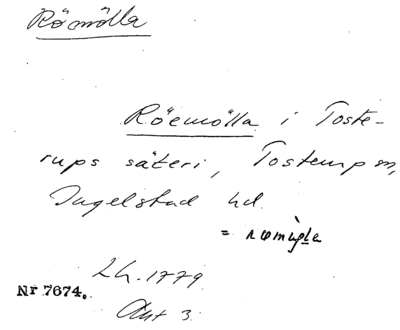 Röemölla
Röemölla i Toste-
rups säteri, Tosterup sn,
Ingelstad hd.
=
Lh. 1779
Nr 7674.
Akt 3